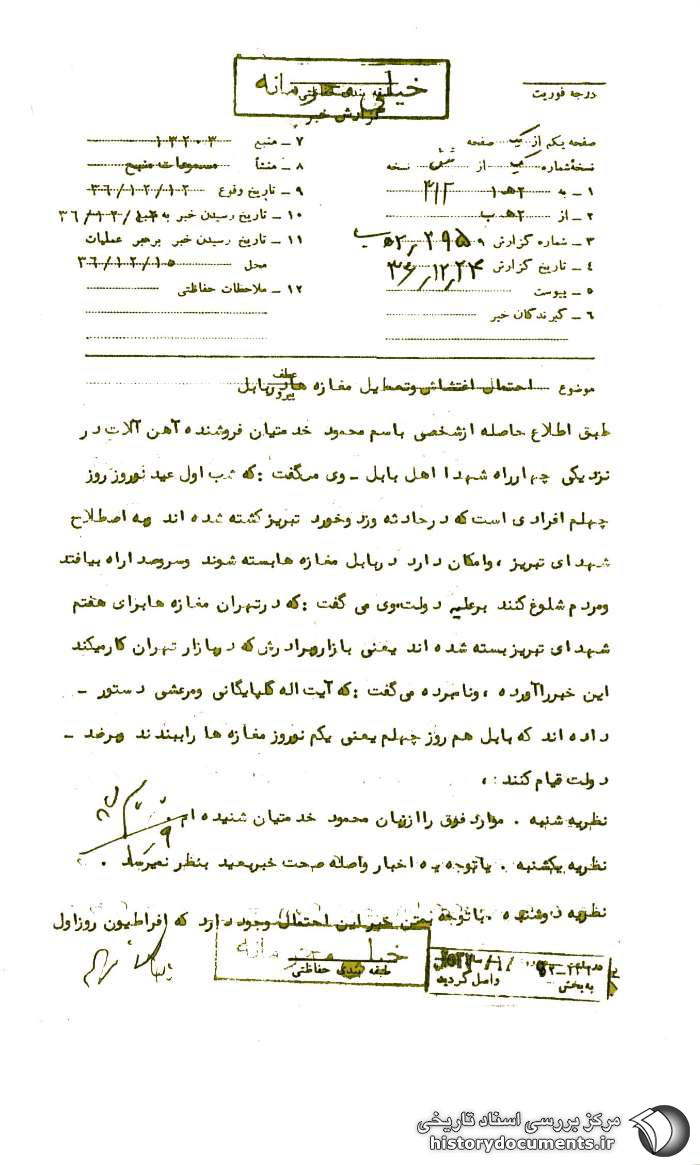 خیلی محرمانه
طبقه بندی حفاظتی
گزارش خبر
درجه فوریت
صفحه یکم از یک صفحه
نسخه شماره یک از شش نسخه
۱ ـ به ۲هـ۱ ۳۱۲
۲ ـ از ۲هـ ب
۳ ـ شماره گزارش
۴ ـ تاریخ گزارش ۳۶/۱۲/۲۴
۵ ـ پیوست
۶ ـ گیرندگان خبر
۷ ـ منبع ۱۳۲۰۳
۸ ـ منشأ مسموعات منبع
۹ ـ تاریخ وقوع ۳۶/۱۲/۱۲
۱۰ ـ تاریخ رسیدن خبر به منبع
۱۱ ـ تاریخ رسیدن خبر برهبر عملیات
محل ۳۶/۱۲/۱۵
۱۲ ـ ملاحظات حفاظتی
موضوع احتمال اغتشاش وتعطیل مغازه ها در بابل
عطف
پیرو
طبق اطلاع حاصله ازشخصی باسم محمود خدمتیان فروشنده آهن آلات در
نزدیکی چهارراه شهدا اهل بابل ـ وی میگفت :که شب اول عید نوروز روز
چهلم افرادی است که درحادثه وزد وخورد تبریز کشته شده اند وبه اصطلاح
شهدای تبریز ،وامکان دارد دربابل مغازه هابسته شوند وسروصدا راه بیافتد
ومردم شلوغ کنند برعلیه دولت،وی می گفت :که درتهران مغازه هابرای هفتم
شهدای تبریز بسته شده اند یعنی بازاروبرادرش که دربازار تهران کارمیکند
این خبرراآورده ،ونامبرده می گفت :که آیت اله گلپایگانی ومرعشی دستور ـ
داده اند که بابل هم روز چهلم یعنی یکم نوروز مغازه ها راببندند وبرضد ـ
دولت قیام کنند :،
نظریه شنبه . موارد فوق را اززبان محمود خدمتیان شنیده ام .
نظریه یکشنبه . باتوجه به اخبار واصله صحت خبربعید بنظر نمیرسد .
نظریه دوشنبه .باتوجه بمتن خبر این احتمال وجود دارد که افراطیون روزاول
خیلی محرمانه
طبقه بندی حفاظتی
به بخش واصل گردید
مرکز بررسی اسناد تاریخی
historydocuments.ir